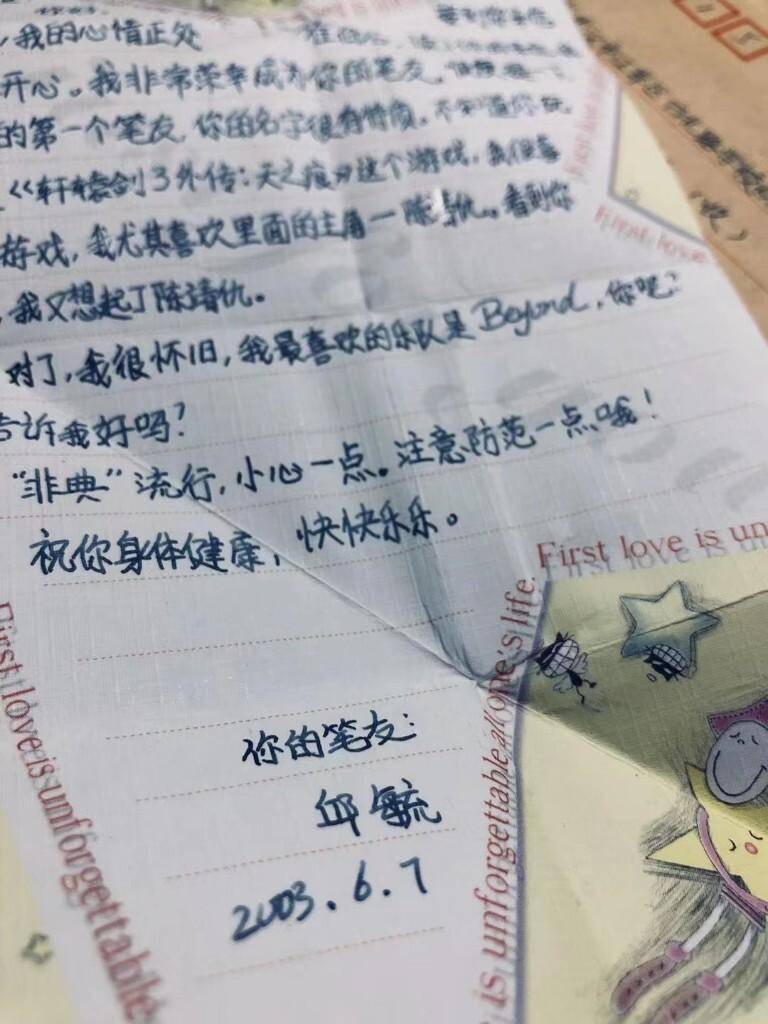 First love
，我的心情正处
开心。我非常荣幸成为你的笔友，
的第一个笔友，你的名字很有情质。不知道你玩
《轩辕剑3外传：天之痕》这个游戏，我很喜
游戏，我尤其喜欢里面的主角一陈靖仇。看到你
，我又想起了陈靖仇。
对了，我很怀旧，我最喜欢的乐队是Beyond，你呢？
告诉我好吗？
"非典"流行，小心一点。注意防范一点哦！
祝你身体健康，快快乐乐。
你的笔友：
邱毓
2003.6.7
First love is un
First love is unforgettable
is unforgettable all one's life.
First love
（收）